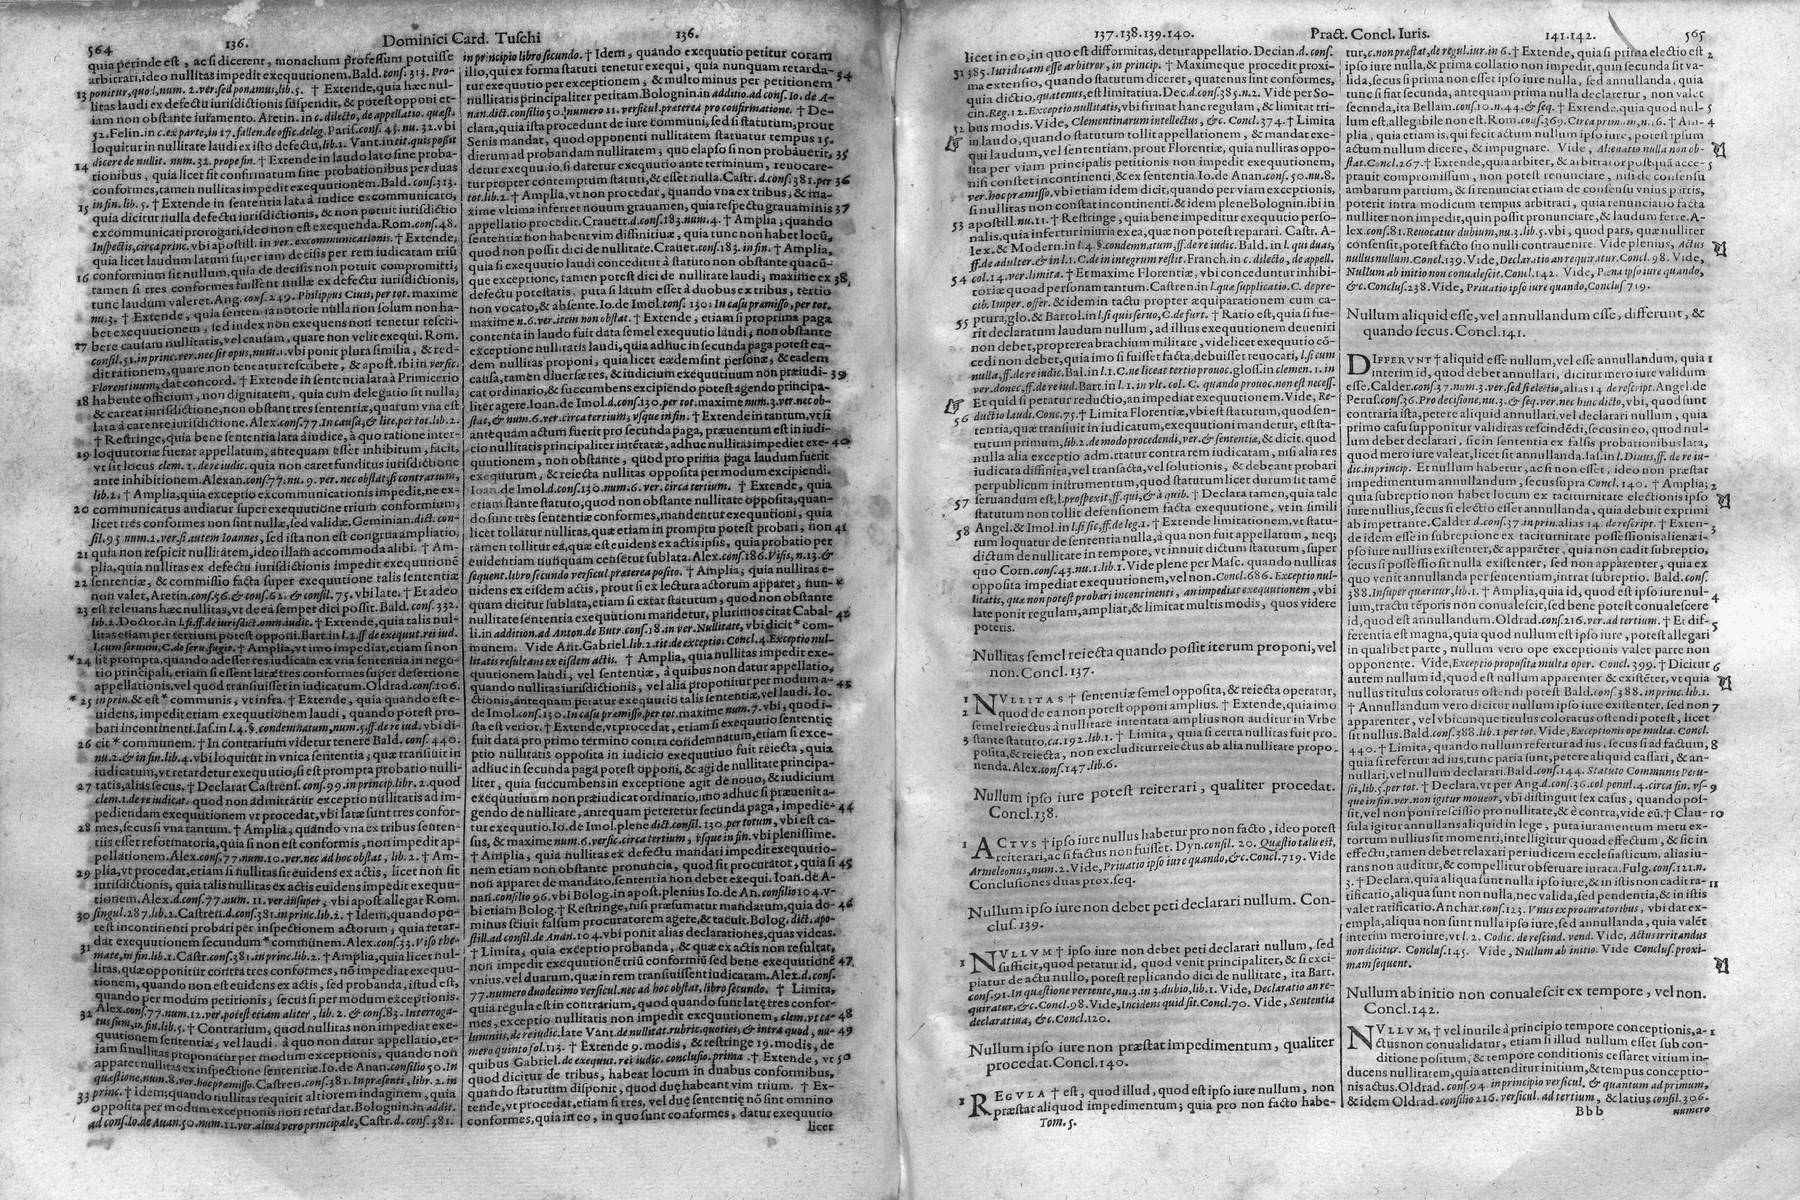 564
136.
Dominici Card. Tuschi
136.
quia perinde est, ac si dicerent, monachum professum potuisse
arbitrari, ideo nullitas impedit exequutionem. Bald. cons. 313. Pro-
13 ponitur, quod, num. 2. ver. sed ponamus, lib. 5. † Extende, quia hæc nul-
litas laudi ex defectu iurisdictionis suspendit, & potest opponi et-
iam non obstante iuramento. Aretin. in c. dilecto, de appellatio. quæst.
52. Felin. in c. ex parte, in 17. fallen. de offic. deleg. Paris. cons. 45. nu. 32. vbi
loquitur in nullitate laudi ex isto defectu, lib. 1. Vant. in tit. quis possit
14 dicere de nullit. num. 32. prope fin. † Extende in laudo lato sine proba-
tionibus, quia licet sit confirmatum sine probationibus per duas
conformes, tamen nullitas impedit exequutionem. Bald. cons. 313.
15 in fin. lib. 5. † Extende in sententia lata à iudice excommunicato,
quia dicitur nulla defectu iurisdictionis, & non potuit iurisdictio
excommunicati prorogari, ideo non est exequenda. Rom. cons. 48.
Inspectis, circa princ. vbi apostill. in ver. excommunicationis. † Extende,
quia licet laudum latum super iam decisis per rem iudicatam triũ
16 conformium sit nullum, quia de decisis non potuit compromitti,
tamen si tres conformes fuissent nullæ ex defectu iurisdictionis,
tunc laudum valeret. Ang. cons. 249. Philippus Ciuis, per tot. maxime
nu. 3. † Extende, quia sententia notorie nulla non solum non ha-
bet exequutionem, sed iudex non exequens non tenetur rescri-
17 bere causam nullitatis, vel causam, quare non velit exequi. Rom.
consil. 51. in princ. ver. nec sit opus, num. 1. vbi ponit plura similia, & red-
dit rationem, quare non teneatur rescribere, & apost. ibi in versic.
Florentinum, dat concord. † Extende in sententia lata à Primicerio
18 habente officium, non dignitatem, quia cum delegatio sit nulla,
& careat iurisdictione, non obstant tres sententiæ, quarum vna est
lata à carente iurisdictione. Alex. cons. 77. In causa, & lite, per tot. lib. 2.
† Restringe, quia bene sententia lata à iudice, à quo ratione inter-
19 loquutoriæ fuerat appellatum, antequam esset inhibitum, facit,
vt sit locus clem. 1. de re iudic. quia non caret funditus iurisdictione
ante inhibitionem. Alexan. cons. 77. nu. 9. ver. nec obstat, si contrarium,
lib. 2. † Amplia, quia exceptio excommunicationis impedit, ne ex-
20 communicatus audiatur super exequutione trium conformium,
licet tres conformes non sint nullæ, sed validæ. Geminian. dict. con-
sil. 93 num. 2. ver. si autem Ioannes, sed ista non est congrua ampliatio,
21 quia non respicit nullitatem, ideo illam accommoda alibi. † Am-
plia, quia nullitas ex defectu iurisdictionis impedit exequutionẽ
22 sententiæ, & commissio facta super exequutione talis sententiæ
non valet, Aretin. cons. 56. & cons. 61. & consil. 75. vbi late. † Et adeo
23 est releuans hæc nullitas, vt de ea semper dici possit. Bald. cons. 332.
lib. 2. Doctor. in l. fi. ff. de iurisdict. omn. iudic. † Extende, quia talis nul-
litas etiam per tertium potest opponi. Bart. in l. 2. ff. de exequut. rei iud.
l. cum seruum, C. de seru. fugit. † Amplia, vt imo impediat, etiam si non
* 24 sit prompta, quando adesset res iudicata ex vna sententia in nego-
tio principali, etiam si essent latæ tres conformes super desertione
appellationis, vel quod transiuisset in iudicatum. Oldrad. cons. 106.
* 25 in prin. & est* communis, vt infra. † Extende, quia quando est e-
uidens, impedit etiam exequutionem laudi, quando potest pro-
bari incontinenti. Ias. in l. 4. §. condemnatum, num. 5. ff. de re iud. vbi di-
26 cit* communem. † In contrarium videtur tenere Bald. cons. 440.
nu. 2. & in fin. lib. 4. vbi loquitur in vnica sententia, quæ transiuit in
iudicatum, vt retardetur exequutio, si est prompta probatio nulli-
27 tatis, alias secus. † Declarat Castrens. cons. 99. in princip. libr. 2. quod
clem. 1. de re iudicat. quod non admittatur exceptio nullitatis ad im-
pediendam exequutionem vt procedat, vbi latæ sunt tres confor-
28 mes, secus si vna tantum. † Amplia, quando vna ex tribus senten-
tiis esset reformatoria, quia si non est conformis, non impedit ap-
pellationem. Alex. cons. 77. num. 10. ver. nec ad hoc obstat, lib. 2. † Am-
29 plia, vt procedat, etiam si nullitas sit euidens ex actis, licet non sit
iurisdictionis, quia talis nullitas ex actis euidens impedit exequu-
tionem. Alex. d. cons. 77. num. 11. ver. insuper, vbi apost. allegat Rom.
30 singul. 287. lib. 2. Castren. d. cons. 381. in princ. lib. 2. † Idem, quando po-
test incontinenti probari per inspectionem actorum, quia retar-
dat exequutionem secundum* communem. Alex. cons. 33. Viso the-
31 mate, in fin. lib. 1. Castr. cons. 381. in princ. lib. 2. † Amplia, quia licet nul-
litas, quæ opponitur contra tres conformes, nõ impediat exequu-
tionem, quando non est euidens ex actis, sed probanda, istud est,
quando per modum petitionis, secus si per modum exceptionis.
32 Alex. cons. 77. num. 12. ver. potest etiam aliter, lib. 2. & cons. 83. Interroga-
tus sum, in fin. lib. 5. † Contrarium, quod nullitas non impediat exe-
quutionem sententiæ, vel laudi, à quo non datur appellatio, et-
iam si nullitas proponatur per modum exceptionis, quando non
apparet nullitas ex inspectione sententiæ. Io. de Anan. consilio 50. In
quæstione, num. 8. ver. hoc præmisso. Castren. cons. 381. In præsenti, libr. 2. in
33 princ. † idem, quando nullitas requirit altiorem indaginem, quia
opposita per modum exceptionis non retardat. Bolognin. in addit.
ad cons. Io. de Anan. 50. num. 11. ver. aliud vero principale, Castr. d. cons. 381.
in principio libro secundo. † Idem, quando exequutio petitur coram
illo, qui ex forma statuti tenetur exequi, quia nunquam retarda- 34
tur exequutio per exceptionem, & multo minus per petitionem
nullitatis principaliter petitam. Bolognin. in additio. ad cons. Io. de A-
nan. dict. consilio 50. numero 11. versicul. præterea pro confirmatione. † De-
clara, quia ista procedunt de iure communi, sed si statutum, prout
Senis mandat, quod opponenti nullitatem statuatur tempus 15.
dierum ad probandam nullitatem, quo elapso si non probauerit, 35
detur exequutio, si datur exequutio ante terminum, reuoca-
tur propter contemptum statuti, & esset nulla. Castr. d. cons. 381. per 36
tot. lib. 2. † Amplia, vt non procedat, quando vna ex tribus, & ma-
xime vltima inferret nouum grauamen, quia respectu grauaminis 37
appellatio procedit. Crauett. d. cons. 183. num. 4. † Amplia, quando
sententiæ non habent vim diffinitiuæ, quia tunc non habet locũ,
quod non possit dici de nullitate. Crauet. cons. 183. in fin. † Amplia,
quia si exequutio laudi conceditur à statuto non obstante quacũ-
que exceptione, tamen potest dici de nullitate laudi, maxime ex 38
defectu potestatis, puta si latum esset à duobus ex tribus, tertio
non vocato, & absente. Io. de Imol. cons. 130. In casu præmisso, per tot.
maxime n. 6. ver. item non obstat. † Extende, etiam si pro prima paga
contenta in laudo fuit data semel exequutio laudi, non obstante
exceptione nullitatis laudi, quia adhuc in secunda paga potest ea-
dem nullitas laudi proponi, quia licet eædem sint personæ, & eadem
causa, tamen diuersæ res, & iudicium exequutiuum non præiudi- 39
cat ordinario, & succumbens excipiendo potest agendo principa-
liter agere. Ioan. de Imol. d. cons. 130. per tot. maxime num. 3. ver. nec ob-
stat, & num. 6. ver. circa tertium, vsque in fin. † Extende in tantum, vt si
antequam actum fuerit pro secunda paga, præuentum est in iudi-
cio nullitatis principaliter intẽtatæ, adhuc nullitas impediet exe- 40
quutionem, non obstante, quod pro prima paga laudum fuerit
exequutum, & reiecta nullitas opposita per modum excipiendi.
Ioan. de Imol. d. cons. 130. num. 6. ver. circa tertium. † Extende, quia
etiam stante statuto, quod non obstante nullitate opposita, quan-
do sunt tres sententiæ conformes, mandentur exequutioni, quia
licet tollatur nullitas, quæ etiam in promptu potest probari, non 41
tamen tollitur ea, quæ est euidens ex actis ipsis, quia probatio per
euidentiam nunquam censetur sublata. Alex. cons. 186. Visis, n. 13. &
sequent. libro secundo versicul. præterea posito. † Amplia, quia nullitas e-
uidens ex eisdem actis, prout si ex lectura actorum apparet, nun- *
quam dicitur sublata, etiam si extat statutum, quod non obstante
nullitate sententia exequutioni mandetur, plurimos citat Cabal- 42
li. in addition. ad Anton. de Butr. cons. 18. in ver. Nullitate, vbi dicit* com-
munem. Vide Ant. Gabriel. lib. 2. tit. de exceptio. Concl. 4. Exceptio nul-
litatis resultans ex eisdem actis. † Amplia, quia nullitas impedit exe-
quutionem laudi, vel sententiæ, à quibus non datur appellatio,
quando nullitas iurisdictionis, vel alia proponitur per modum a- 43
ctionis, antequam petatur exequutio talis sententiæ, vel laudi. Io.
de Imol. cons. 130. In casu præmisso, per tot. maxime num. 7. vbi, quod i-
sta est verior. † Extende, vt procedat, etiam si exequutio sententiæ
fuit data pro primo termino contra condemnatum, etiam si exce-
ptio nullitatis opposita in iudicio exequutiuo fuit reiecta, quia
adhuc in secunda paga potest opponi, & agi de nullitate principa-
liter, quia succumbens in exceptione agit de nouo, & iudicium
exequutiuum non præiudicat ordinario, imo adhuc si præuenit a-
gendo de nullitate, antequam peteretur secunda paga, impedie- 44
tur exequutio. Io. de Imol. plene dict. consil. 130. per totum, vbi est ca-
sus, & maxime num. 6. versic. circa tertium, vsque in fin. vbi plenissime.
† Amplia, quia nullitas ex defectu mandati impedit exequutio-
nem etiam non obstante pronuncia, quod sit procurator, quia si 45
non apparet de mandato, sententia non debet exequi. Ioan. de A-
nan. consilio 96. vbi Bolog. in apost. plenius Io. de An. consilio 104. v-
bi etiam Bolog. † Restringe, nisi præsumatur mandatum, quia do- 46
minus sciuit falsum procuratorem agere, & tacuit. Bolog. dict. apo-
still. ad consil. de Anan. 104. vbi ponit alias declarationes, quas videas.
† Limita, quia exceptio probanda, & quæ ex actis non resultat,
non impedit exequutionẽ triũ conformiũ sed bene exequutionẽ 47
vnius, vel duarum, quæ in rem transiuissent iudicatam. Alex. d. cons.
77. numero duodecimo versicul. nec ad hoc obstat, libro secundo. † Limita,
quia regula est in contrarium, quod quando sunt latæ tres confor-
mes, exceptio nullitatis non impedit exequutionem, clem. vt ca- 48
lumniis, de re iudic. late Vant. de nullitat. rubric. quoties, & intra quod, nu- 49
mero quinto fol. 113. † Extende 9. modis, & restringe 19. modis, de
quibus Gabriel. de exequut. rei iudic. conclusio. prima. † Extende, vt 50
quod dicitur de tribus, habeat locum in duabus conformibus,
quando statutum disponit, quod duę habeant vim trium. † Ex-
tende, vt procedat, etiam si tres, vel duę sententię nõ sint omnino
conformes, quia in eo, in quo sunt conformes, datur exequutio
licet
137. 138. 139. 140.
Pract. Concl. Iuris.
141. 142.
565
licet in eo, in quo est difformitas, detur appellatio. Decian. d. cons.
51 385. Iuridicam esse arbitror, in princip. † Maximeque procedit proxi-
ma extensio, quando statutum diceret, quatenus sint conformes,
quia dictio, quatenus, est limitatiua. Dec. d. cons. 385. n. 2. Vide per So-
cin. Reg. 12. Exceptio nullitatis, vbi firmat hanc regulam, & limitat tri-
52 bus modis. Vide, Clementinarum intellectus, &c. Concl. 374. † Limita
in laudo, quando statutum tollit appellationem, & mandat exe-
qui laudum, vel sententiam, prout Florentiæ, quia nullitas oppo-
sita per viam principalis petitionis non impedit exequutionem,
nisi constet incontinenti, & ex sententia. Io. de Anan. cons. 50. nu. 8.
ver. hoc præmisso. vbi etiam idem dicit, quando per viam exceptionis,
si nullitas non constat incontinenti. & idem plene Bolognin. ibi in
53 apostill. nu. 11. † Restringe, quia bene impeditur exequutio perso-
nalis, quia infertur iniuria ex ea, quæ non potest reparari. Castr. A-
lex. & Modern. in l. 4. §. condemnatum, ff. de re iudic. Bald. in l. qui duas,
ff. de adulter. & in l. 1. C. de in integrum restit. Franch. in c. dilecto, de appell.
54 col. 14. ver. limita. † Et maxime Florentiæ, vbi conceduntur inhibi-
toriæ quoad personam tantum. Castren. in l. quæ supplicatio. C. de pre-
cib. Imper. offer. & idem in tactu propter æquiparationem cum ca-
55 ptura, glo. & Bartol. in l. si quis seruo, C. de furt. † Ratio est, quia si fue-
rit declaratum laudum nullum, ad illius exequutionem deueniri
non debet, propterea brachium militare, videlicet exequutio cõ-
cedi non debet, quia imo si fuisset facta, debuisset reuocari, l. si cum
nulla, ff. de re iudic. Bal. in l. 1. C. ne liceat tertio prouoc. gloss. in clemen. 1. in
ver. donec, ff. de re iud. Bart. in l. 1. in vlt. col. C. quando prouoc. non est necess.
Et quid si petatur reductio, an impediat exequutionem. Vide, Re-
56 ductio laudi. Conc. 75. † Limita Florentiæ, vbi est statutum, quod sen-
tentia, quæ transiuit in iudicatum, exequutioni mandetur, est sta-
tutum primum, lib. 2. de modo procedendi, ver. & sententiæ, & dicit, quod
nulla alia exceptio admittatur contra rem iudicatam, nisi alia res
iudicata diffinita, vel transacta, vel solutionis, & debeant probari
per publicum instrumentum, quod statutum licet durum sit tamẽ
57 seruandum est, l. prospexit, ff. qui, & à quib. † Declara tamen, quia tale
statutum non tollit defensionem factæ exequutione, vt in simili
58 Angel. & Imol. in l. si sic, ff. de leg. 1. † Extende limitationem, vt statu-
tum loquatur de sententia nulla, à qua non fuit appellatum, neq;
dictum de nullitate in tempore, vt innuit dictum statutum, super
quo Corn. cons. 43. nu. 1. lib. 1. Vide plene per Masc. quando nullitas
opposita impediat exequutionem, vel non. Concl. 686. Exceptio nul-
litatis, quæ non potest probari incontinenti, an impediat exequutionem, vbi
late regulam, ampliat, & limitat multis modis, quos videre
poteris.
Nullitas semel reiecta quando possit iterum proponi, vel
non. Concl. 137.
1 NVLLITAS † sententiæ semel opposita, & reiecta operatur,
2 quod de ea non potest opponi amplius. † Extende, quia imo
semel reiectus à nullitate intentata amplius non auditur in Vrbe
3 stante statuto, ca. 192. lib. 1. † Limita, quia si certa nullitas fuit pro-
posita, & reiecta, non excluditur reiectus ab alia nullitate propo-
nenda. Alex. cons. 147. lib. 6.
Nullum ipso iure potest reiterari, qualiter procedat.
Concl. 138.
1 ACTVS † ipso iure nullus habetur pro non facto, ideo potest
reiterari, ac si factus non fuisset. Dyn. consil. 20. Quæstio talis est,
Armeleonus, num. 2. Vide, Priuatio ipso iure quando, &c. Concl. 719. Vide
Conclusiones duas prox. seq.
Nullum ipso iure non debet peti declarari nullum. Con-
clus. 139.
1 NVLLVM † ipso iure non debet peti declarari nullum, sed
sufficit, quod petatur id, quod venit principaliter, & si exci-
piatur de actu nullo, potest replicando dici de nullitate, ita Bart.
cons. 91. In quæstione vertente, nu. 3. in 3. dubio, lib. 1. Vide, Declaratio an re-
quiratur, &c. Concl. 98. Vide, Incidens quid sit. Concl. 70. Vide, Sententia
declaratiua, &c. Concl. 120.
Nullum ipso iure non præstat impedimentum, qualiter
procedat. Concl. 140.
1 REGVLA † est, quod illud, quod est ipso iure nullum, non
præstat aliquod impedimentum; quia pro non facto habe-
Tom. 5.
tur, c. non præstat, de regul. iur. in 6. † Extende, quia si prima electio est 2
ipso iure nulla, & prima collatio non impedit, quin secunda sit va-
lida, secus si prima non esset ipso iure nulla, sed annullanda, quia
tunc si fiat secunda, antequam prima nulla declaretur, non valet
secunda, ita Bellam. cons. 10. n. 44. & seq. † Extende, quia quod nul- 3
lum est, allegabile non est. Rom. cons. 369. Circa primum, n. 6. † Am- 4
plia, quia etiam is, qui fecit actum nullum ipso iure, potest ipsum
actum nullum dicere, & impugnare. Vide, Alienatio nulla non ob-
stat. Concl. 267. † Extende, quia arbiter, & arbitrator postquã acce- 5
ptauit compromissum, non potest renunciare, nisi de consensu
ambarum partium, & si renunciat etiam de consensu vnius partis,
poterit intra modicum tempus arbitrari, quia renunciatio facta
nulliter non impedit, quin possit pronunciare, & laudum ferre. A-
lex. cons. 81. Reuocatur dubium, nu. 3. lib. 5. vbi, quod pars, quæ nulliter
consensit, potest facto suo nulli contrauenire. Vide plenius, Actus
nullus nullum. Concl. 139. Vide, Declaratio an requiratur. Concl. 98. Vide,
Nullum ab initio non conualescit. Concl. 142. Vide, Pœna ipso iure quando,
&c. Conclus. 238. Vide, Priuatio ipso iure quando, Conclus 719.
Nullum aliquid esse, vel annullandum esse, differunt, &
quando secus. Concl. 141.
DIFFERVNT † aliquid esse nullum, vel esse annullandum, quia 1
interim id, quod debet annullari, dicitur mero iure validum
esse. Calder. cons. 37. num. 3. ver. sed si electio, alias 14 de rescript. Angel. de
Perus. cons. 36. Pro decisione, nu. 3. & seq. ver. nec huic dicto, vbi, quod sunt
contraria ista, petere aliquid annullari, vel declarari nullum, quia
primo casu supponitur validitas rescindẽdi, secus in eo, quod nul-
lum debet declarari, sic in sententia ex falsis probationibus lata,
quod mero iure valeat, licet sit annullanda. Ias. in l. Diuus, ff. de re iu-
dic. in princip. Et nullum habetur, ac si non esset, ideo non præstat
impedimentum annullandum, secus supra Concl. 140. † Amplia, 2
quia subreptio non habet locum ex taciturnitate electionis ipso
iure nullius, secus si electio esset annullanda, quia debuit exprimi
ab impetrante. Calder. d. cons. 37. in prin. alias 14. de rescript. † Exten- 3
de idem esse in subreptione ex taciturnitate possessionis alienæ i-
pso iure nullius existenter, & apparẽter, quia non cadit subreptio,
secus si possessio sit nulla existenter, sed non apparenter, quia ex
quo venit annullanda per sententiam, intrat subreptio. Bald. cons.
388. Insuper quæritur, lib. 1. † Amplia, quia id, quod est ipso iure nul- 4
lum, tractu tẽporis non conualescit, sed bene potest conualescere
id, quod est annullandum. Oldrad. cons. 216. ver. ad tertium. † Et dif- 5
ferentia est magna, quia quod nullum est ipso iure, potest allegari
in qualibet parte, nullum vero ope exceptionis valet parte non
opponente. Vide, Exceptio proposita multa oper. Concl. 399. † Dicitur 6
autem nullum id, quod est nullum apparenter & existẽter, vt quia
nullus titulus coloratus ostendi potest. Bald. cons. 388. in princ. lib. 1.
† Annullandum vero dicitur nullum ipso iure existenter, sed non 7
apparenter, vel vbicunque titulus coloratus ostendi potest, licet
sit nullus. Bald. cons. 388. lib. 1. per tot. Vide, Exceptionis ope multa. Concl.
440. † Limita, quando nullum refertur ad ius, secus si ad factum, 8
quia si refertur ad ius, tunc paria sunt, petere aliquid cassari, & an-
nullari, vel nullum declarari. Bald. cons. 144. Statuto Communis Peru-
sii, lib. 5. per tot. † Declara, vt per Ang. d. cons. 36. col. penul. 4. circa fin. vs- 9
que in fin. ver. non igitur moueor, vbi distinguit sex casus, quando pos-
sit, vel non poni rescissio pro nullitate, & è contra, vide eũ. † Clau- 10
sula igitur annullans aliquid in lege, puta iuramentum metu ex-
tortum nullius sit momenti, intelligitur quoad effectum, & sic in
effectu, tamen debet relaxari per iudicem ecclesiasticum, alias iu-
rans non auditur, & compellitur obseruare iurata. Fulg. cons. 121. n.
3. † Declara, quia aliqua sunt nulla ipso iure, & in istis non cadit ra- 11
tificatio, aliqua sunt non nulla, nec valida, sed pendentia, & in istis
valet ratificatio. Anchar. cons. 123. Vnus ex procuratoribus, vbi dat ex-
empla, aliqua non sunt nulla ipso iure, sed annullanda, quia valẽt
interim mero iure, vt l. 2. Codic. de rescind. vend. Vide, Actus irritandus
non dicitur. Conclus. 145. Vide, Nullum ab initio. Vide Conclus. proxi-
mam sequent.
Nullum ab initio non conualescit ex tempore, vel non.
Concl. 142.
NVLLVM, † vel inutile à principio tempore conceptionis, a- 1
ctus non conualidatur, etiam si illud nullum esset sub con-
ditione positum, & tempore conditionis cessaret vitium in-
ducens nullitatem, quia attenditur initium, & tempus conceptio-
nis actus. Oldrad. cons. 94. in principio versicul. & quantum ad primum,
& idem Oldrad. consilio 216. versicul. ad tertium, & latius consil. 306.
Bbb
numero